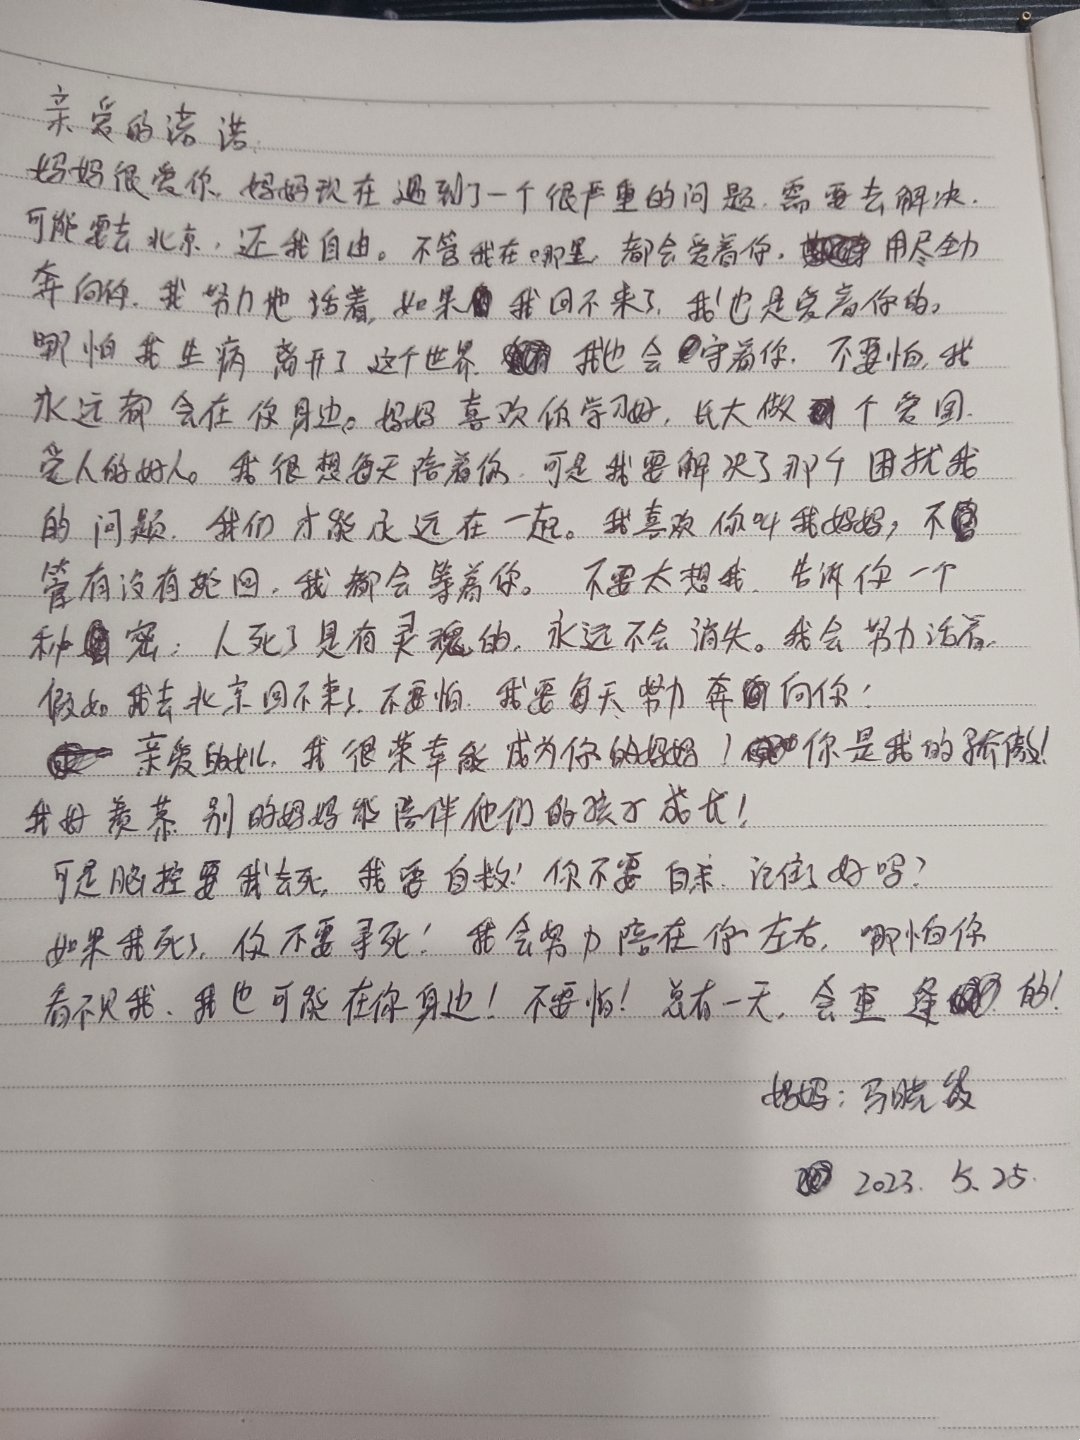 亲爱的诺诺,
妈妈很爱你,妈妈现在遇到了一个很严重的问题,需要去解决.
可能要去北京,还我自由。不管我在哪里,都会爱着你,用尽全力
奔向你,我努力地活着,如果我回不来了,我也是爱着你的。
哪怕我生病离开了这个世界,我也会守着你,不要怕,我
永远都会在你身边。妈妈喜欢你学习好,长大做个爱国
爱人的好人。我很想每天陪着你,可是我要解决了那个困扰我
的问题,我们才能永远在一起。我喜欢你叫我妈妈,不
管有没有轮回,我都会等着你。不要太想我,告诉你一个
秘密:人死了是有灵魂的,永远不会消失。我会努力活着,
假如我去北京回不来了,不要怕,我要每天努力奔向你!
亲爱的,我很荣幸能成为你的妈妈!你是我的骄傲!
我好羡慕别的妈妈能陪伴他们的孩子成长!
可是脑控要我去死,我要自救!你不要自杀,记住了好吗?
如果我死了,你不要寻死!我会努力陪在你左右,哪怕你
看不见我,我也可能在你身边!不要怕!总有一天,会重逢的!
妈妈:马晓
2023.5.25.